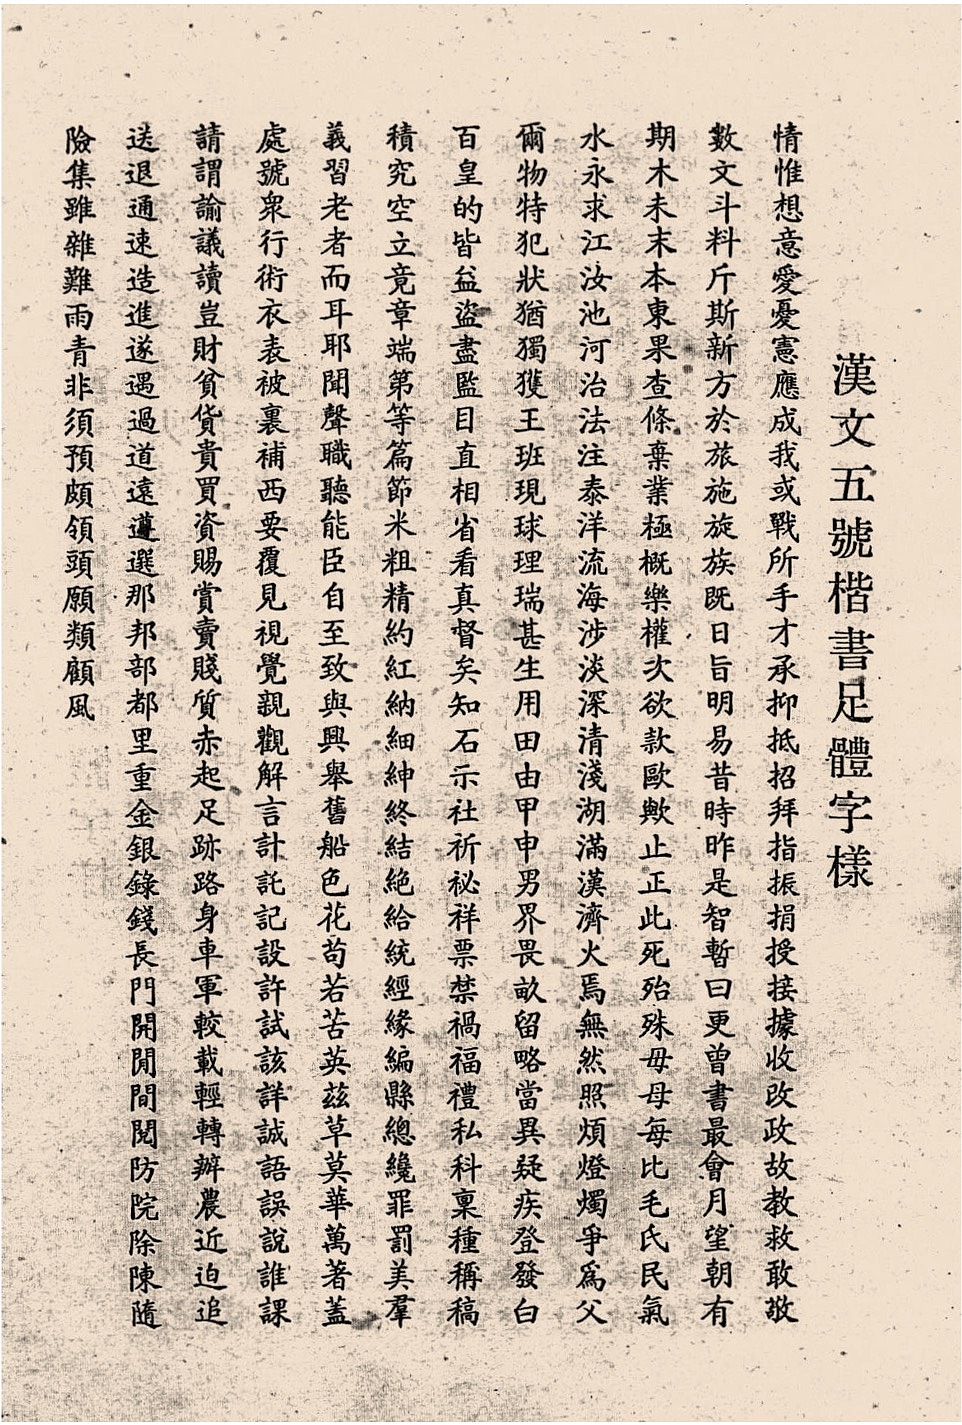 漢文五號楷書足體字樣
情惟想意愛憂憲應成我或戰所手才承抑抵招拜指振捐授接據收改政故教救敢敬
數文斗料斤斯新方於旅施旋族既日旨明易昔時昨是智暫曰更曾書最會月望朝有
期木未末本東果查條棄業極概樂權次欲款歐歟止正此死殆殊毋母每比毛氏民氣
水永求江汝池河治法注泰洋流海涉淡深清淺湖滿漢濟火焉無然照煩燈燭爭爲父
爾物特犯狀猶獨獲王班現球理瑞甚生用田由甲申男界畏畝留略當異疑疾登發白
百皇的皆益盜盡監目直相省看真督矣知石示社祈祕祥票禁禍福禮私科稟種稱稿
積究空立竟章端第等篇節米粗精約紅納細紳終結絕給統經緣編縣總纔罪罰美羣
義習老者而耳耶聞聲職聽能臣自至致與興舉舊船色花苟若苦英茲草莫華萬著蓋
處號衆行術衣表被裏補西要覆見視覺親觀解言計託記設許試該詳誠語誤說誰課
請謂諭議讀豈財貧貨貴買資賜賞賣賤質赤起足跡路身車軍較載輕轉辦農近迫追
送退通速造進遂遇過道遠遵選那邦部都里重金銀錄錢長門開閒間閱防院除陳隨
險集雖雜難雨青非須預頗領頭願類顧風